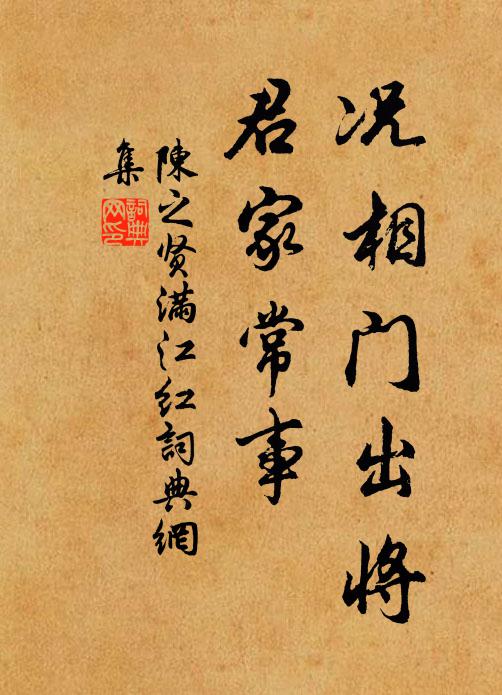 况相门出将
君家常事
陳之贤满江红詞典網
集
詞典網印